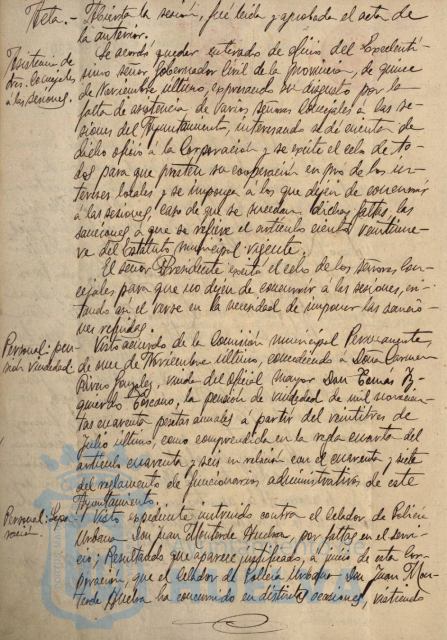 Acta.- Abierta la sesión, fué leida y aprobada el acta de
la anterior.
Asistencia de
sres. Concejales
a las sesiones.
Se acordó quedar enterado de oficio del Excelentí-
simo señor Gobernador Civil de la provincia, de quince
de Noviembre último, expresando su disgusto por la
falta de asistencia de varios señores Concejales a las se-
siones del Ayuntamiento, interesando se dé cuenta de
dicho oficio á la Corporación y se excite el celo de to-
dos para que presten su cooperación en pro de los in-
tereses locales y se imponga á los que dejen de concurrir
á las sesiones, caso de que se sucedan dichas faltas, las
sanciones á que se refiere el artículo ciento veintinue-
ve del Estatuto municipal vigente.
El señor Presidente excita el celo de los señores Con-
cejales para que no dejen de concurrir a las sesiones, evi-
tando así el verse en la necesidad de imponer las sancio-
nes referidas.
Personal: pen-
sión viudedad.
Visto acuerdo de la Comisión municipal Permanente,
de nueve de Noviembre último, concediendo a Doña Carmen
Rivero González, viuda del oficial mayor Don Tomás Iz-
quierdo Toscano, la pensión de viudedad de mil novecien-
tas cuarenta pesetas anuales á partir del veintitres de
Julio último, como comprendida en la regla cuarta del
artículo cuarenta y seis en relación con el cuarenta y siete
del reglamento de funcionarios administrativos de este
Ayuntamiento.
Personal: Sepa-
ración.
Visto expediente instruido contra el Celador de Policía
Urbana Don Juan Monterde Huelva, por faltas en el servi-
cio; Resultando que aparece justificado, a juicio de esta Cor-
poración, que el Celador de Policía Urbana Don Juan Mon-
terde Huelva ha concurrido en distintas ocasiones, vistiendo